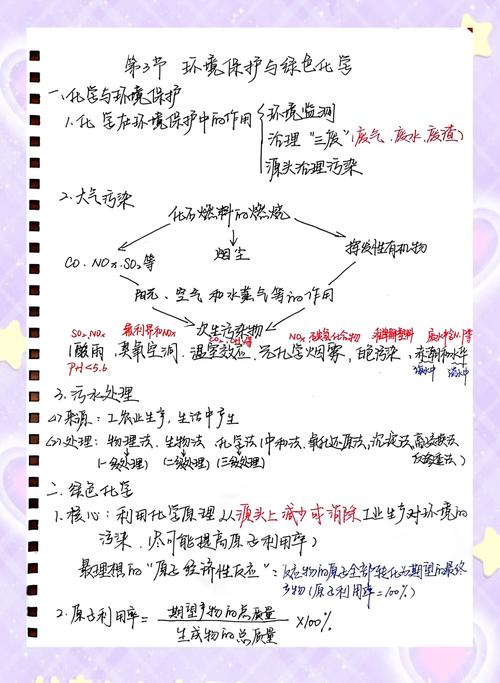 第3节 环境保护与绿色化学
一、化学与环境保护
1.化学在环境保护中的作用
环境监测
治理“三废”(废气、废水、废渣)
源头治理污染
2.大气污染
化石燃料的燃烧
CO、NOx、SO₂等
烟尘
挥发性有机物
阳光、空气和水蒸气等的作用
次生污染物
SO₂、NOx 氟利昂和NOx CO₂、CH₄等 NOx、碳氢化合物 难降解塑料 废水含N、P等
酸雨,臭氧空洞,温室效应,光化学烟雾,白色污染,赤潮和水华
PH<5.6 海水中 淡水中
3.污水处理
(1)来源:工农业生产,生活中产生
(2)处理:物理法、生物法、化学法(中和法、氧化还原法、沉淀法、离子交换法、
反渗透法)
(一级处理) (二级处理) (三级处理)
二、绿色化学
1.核心:利用化学原理从源头上减少或消除工业生产对环境的
污染.(尽可能提高原子利用率)
最理想的“原子经济性反应”:反应物的原子全部转化为期望的最终
产物(原子利用率=100%)
2.原子利用率= 期望产物的总质量 ×100%
生成物的总质量